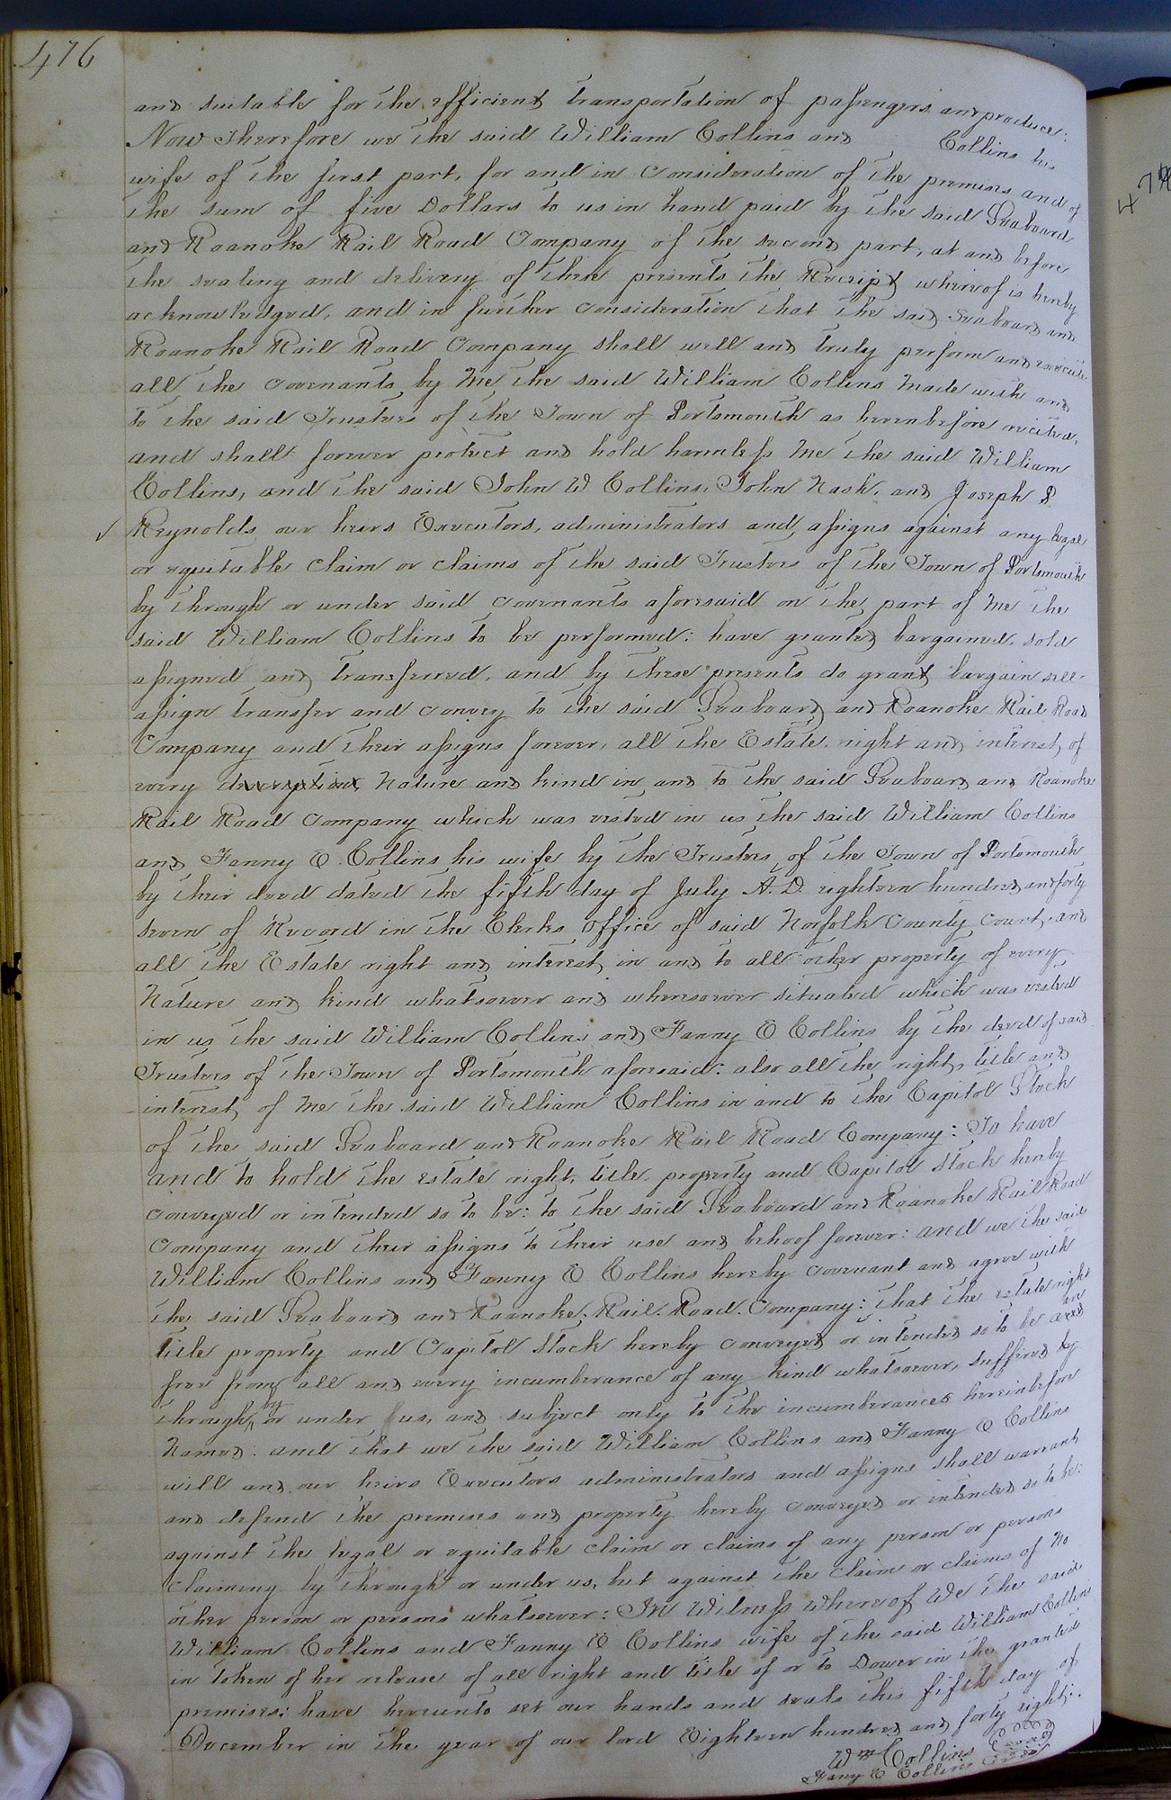 476
and suitable for the efficient transportation of passengers and produce:
Now Therefore we the said William Collins and Collins his
wife of the first part, for and in consideration of the premises and of
the sum of five Dollars to us in hand paid by the said Seaboard
and Roanoke Rail Road Company of the second part, at and before
the sealing and delivery of these presents the Receipt whereof is hereby
acknowledged, and in further consideration that the said Seaboard and
Roanoke Rail Road Company shall well and truly perform and execute
all the covenants by Me the said William Collins Made with and
to the said Trustees of the Town of Portsmouth as hereinbefore recited,
and shall forever protect and hold harmless Me the said William
Collins, and the said John W Collins, John Nash, and Joseph P.
Reynolds our heirs Executors, administrators and assigns against any legal
or equitable claim or claims of the said Trustees of the Town of Portsmouth
by through or under said covenants aforesaid on the part of Me the
said William Collins to be performed: have granted bargained, sold
assigned and transferred, and by these presents do grant bargain sell
assign transfer and convey to the said Seaboard and Roanoke Rail Road
Company and their assigns forever, all the Estate right and interest, of
every description, Nature and kind in and to the said Seaboard and Roanoke
Rail Road Company which was vested in us the said William Collins
and Fanny E. Collins his wife by the Trustees of the Town of Portsmouth
by their deed dated the fifth day of July A.D. eighteen hundred and forty
seven of Record in the Clerks Office of said Norfolk County Court, and
all the Estate right and interest, in and to all other property of every
Nature and kind whatsoever and wheresoever situated which was vested
in us the said William Collins and Fanny E Collins by the deed of said
Trustees of the Town of Portsmouth aforesaid: also all the right, title and
interest, of Me the said William Collins in and to the Capitol Stock
of the said Seaboard and Roanoke Rail Road Company: To have
and to hold the estate right, title property and Capitol Stock hereby
conveyed or intended so to be: to the said Seaboard and Roanoke Rail Road
Company and their assigns to their use and behoof forever: and we the said
William Collins and Fanny E Collins hereby covenant and agree with
the said Seaboard and Roanoke, Rail. Road. Company: that the estate right
title property and Capitol Stock hereby conveyed or intended so to be are
free from all and every incumberance of any kind whatsoever, suffered by
through, or under us, and subject only to the incumberances hereinbefore
Named: and that we the said William Collins and Fanny E Collins
will and our heirs Executors administrators and assigns shall warrant
and defend the premises and property hereby conveyed or intended so to be:
against the legal or equitable claim or claims of any person or persons
claiming by through or under us, but against the claim or claims of No
other person or persons whatsoever: In Witness Whereof We the said
William Collins and Fanny E Collins wife of the said William Collins
in token of her release of all right and title of or to Dower in the granted
premises: have hereunto set our hands and seals this fifth day of
December in the year of our lord Eighteen hundred and forty eight:.
Wm Collins Seal
Fany E Collins Seal